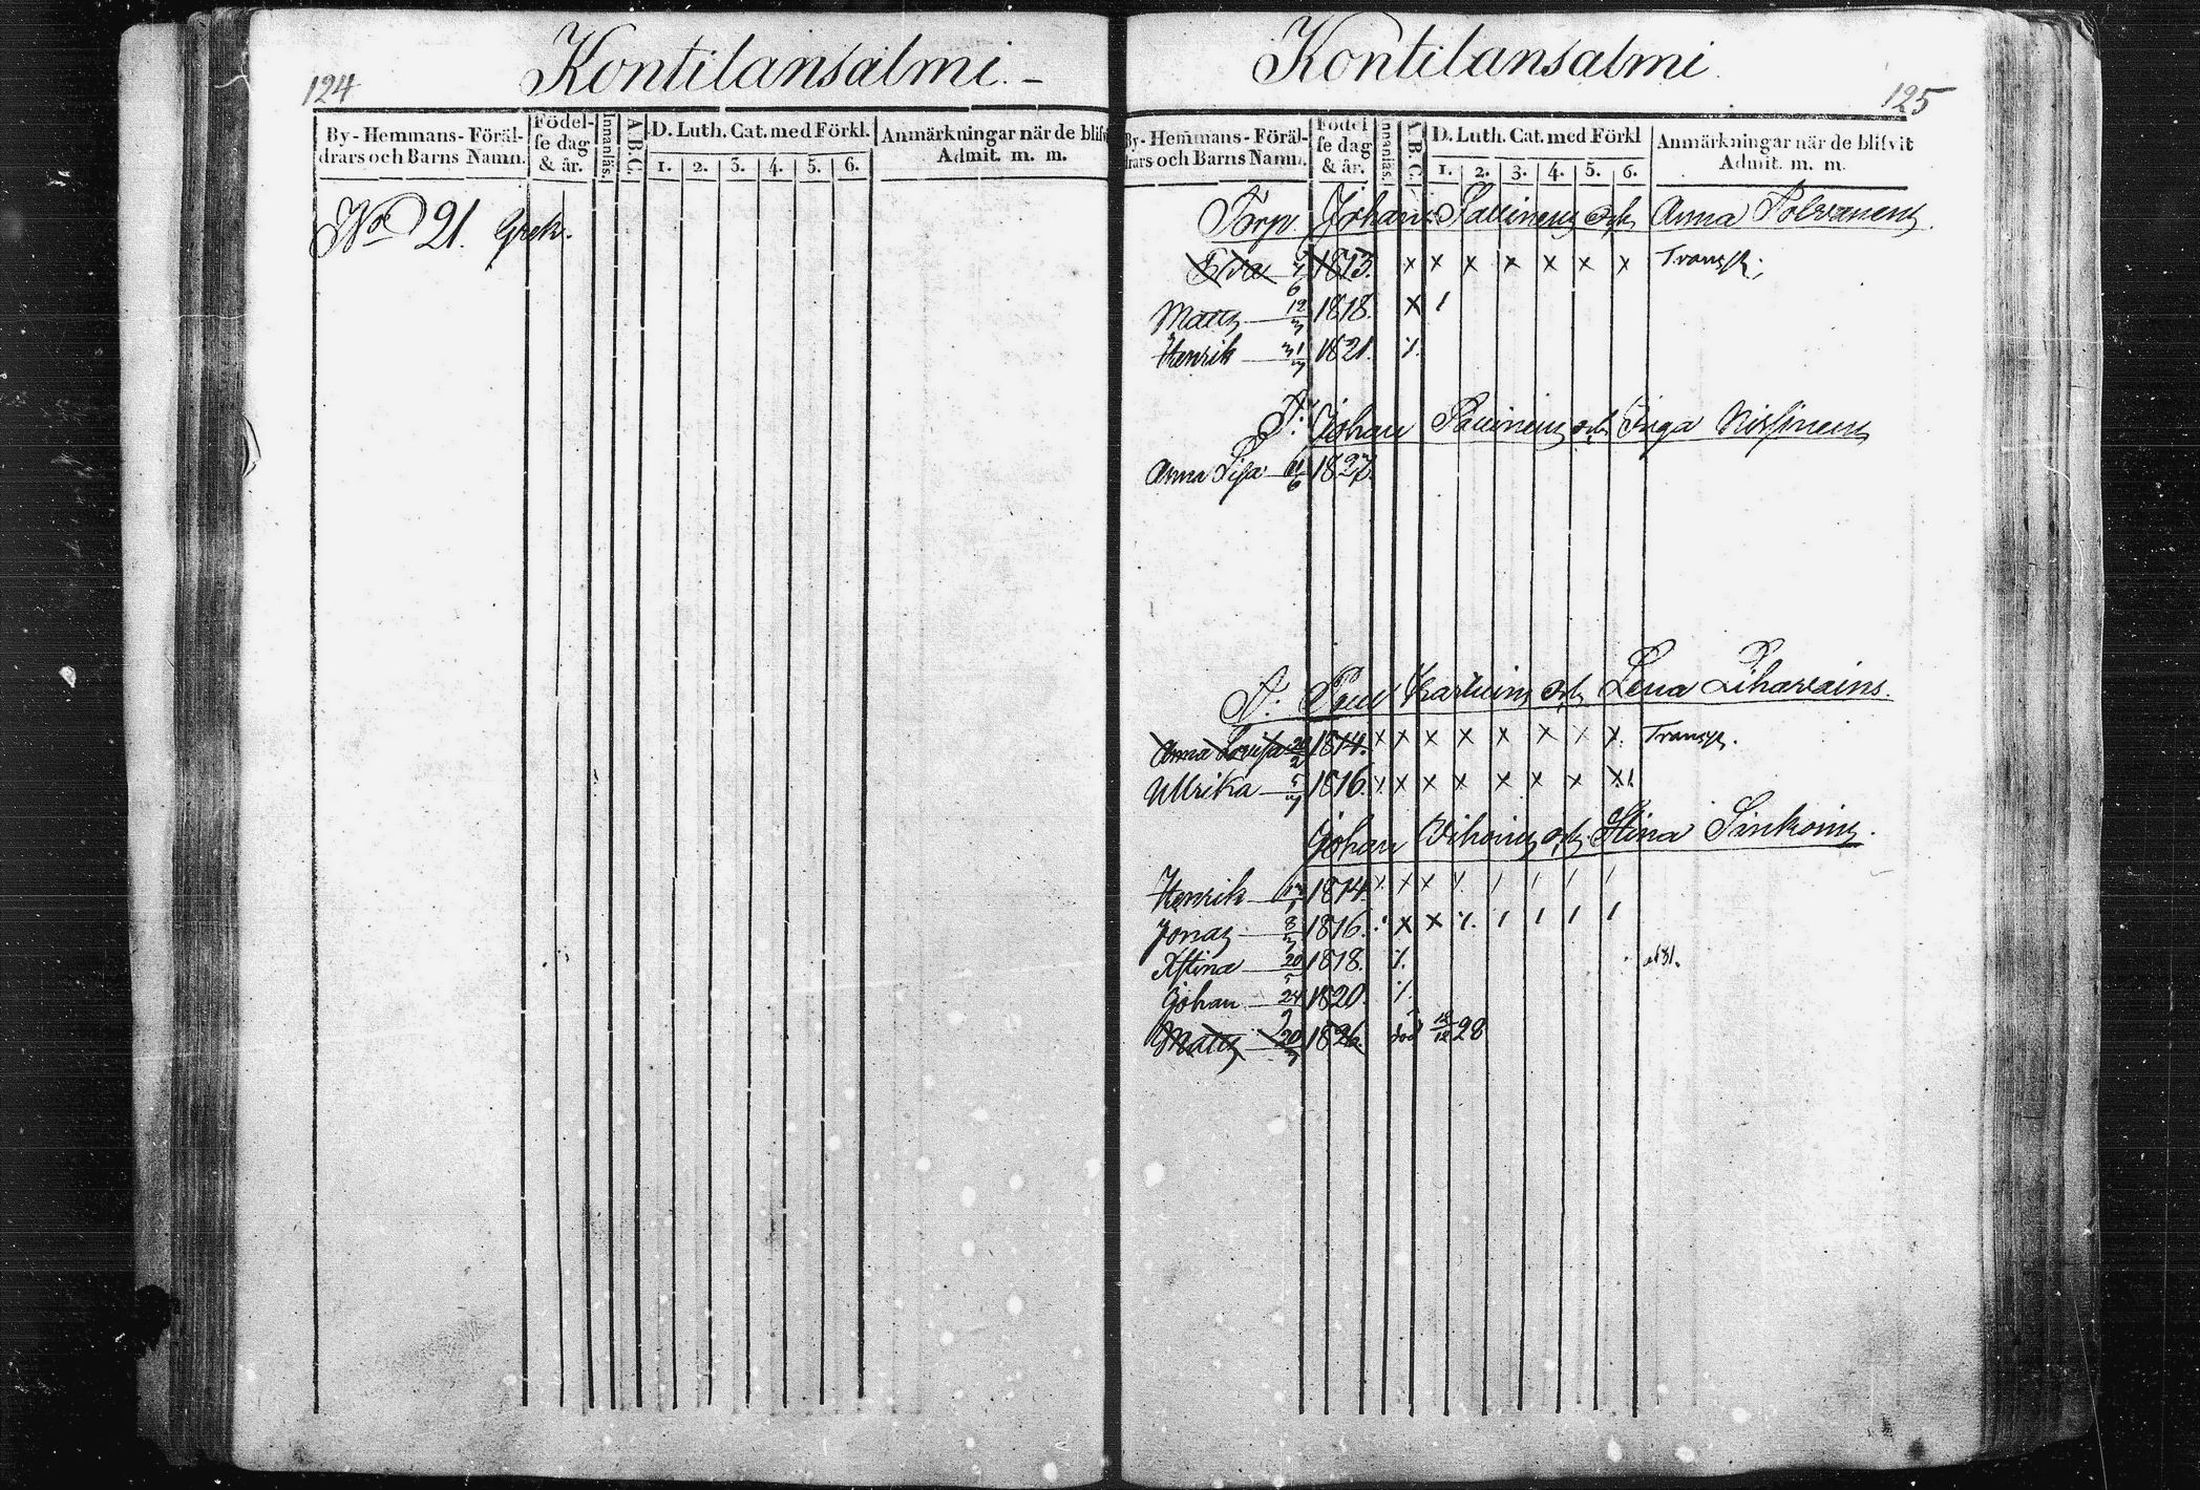 124
Kontilansalmi. -
By- Hemmans- Föräl-
drars och Barns Namn.
Födel-
se dag
& år.
Innanläs.
A.B.C.
D. Luth. Cat. med Förkl.
1. 2. 3. 4. 5. 6.
Anmärkningar när de blifvit
Admit. m. m.
No 21. Grek.
Kontilansalmi
125
By- Hemmans- Föräl-
drars och Barns Namn.
Födel
se dag
& år.
Innanläs.
A.B.C.
D. Luth. Cat. med Förkl
1. 2. 3. 4. 5. 6.
Anmärkningar när de blifvit
Admit. m. m.
Torp. Johan och Anna
Eva 1813. x x x x x x x Transp.
Matts 12/3 1818. x /
Henrik 31/3 1821.
Johan och Inga
Anna Lisa 1827.
och Lena
Anna Lovisa 1814. x x x x x x x x Transp.
Ullrika 5/3 1816. x x x x x x x
Johan och Stina Sinkoin
Henrik 1814. x x / / / / /
Jonas 8/3 1816. x x / / / /
Kstina 20/5 1818.
Johan 24 1820.
Matts 20/3 1826. död 15/12 28